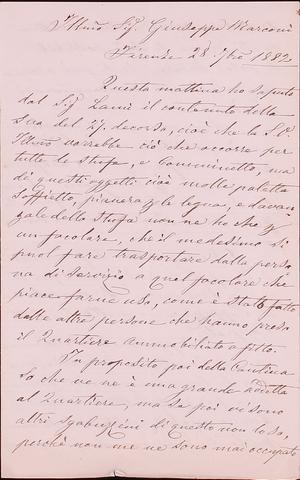 Illmo Sig. Giuseppe Marconi
Firenze 28 9bre 1882
Questa mattina ho saputo
dal Sig. Lami il contenuto della
sua del 27. decorso, cioè che la S.V.
Illma vorrebbe ciò che occorre per
tutte le stufe, e Camminetto, ma
di questi oggetti cioè molle paletta
soffietto, per le legna, e davan
zale della stufa non ne ho che p
un focolare, che il medesimo si
puol fare trasportare dalla perso
na di servizio a quel focolare che
piace farne uso, come è stato fatto
dalle altre persone che hanno preso
il Quartiere ammobiliato a fitto.
In proposito poi della Cantina
so che ve ne è una grande addetta
al Quartiere, ma se poi vi sono
altri sgabuzzini di questo non lo so,
perchè non me ne sono mai occupato